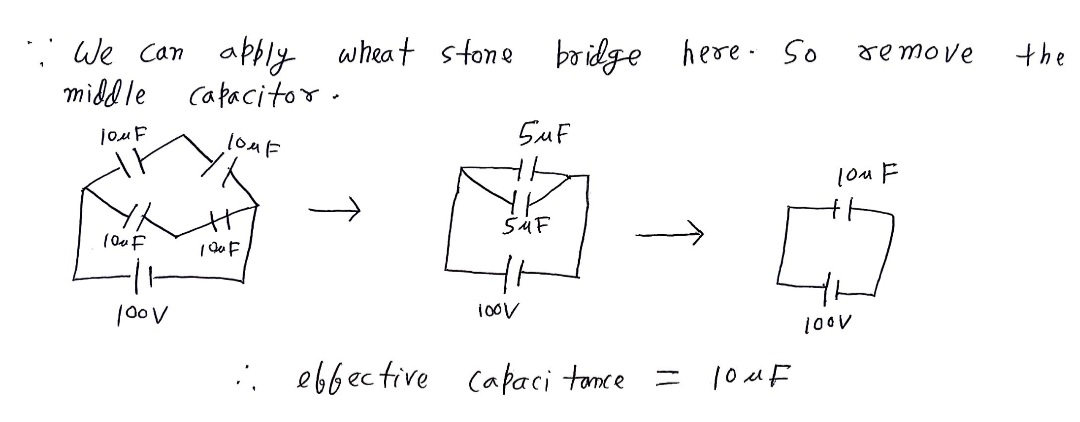 ∵ We can apply wheat stone bridge here. So remove the
middle capacitor.
10μF 10μF
10μF 10μF
100V
→
5μF
5μF
100V
→
10μF
100V
∴ effective capacitance = 10μF